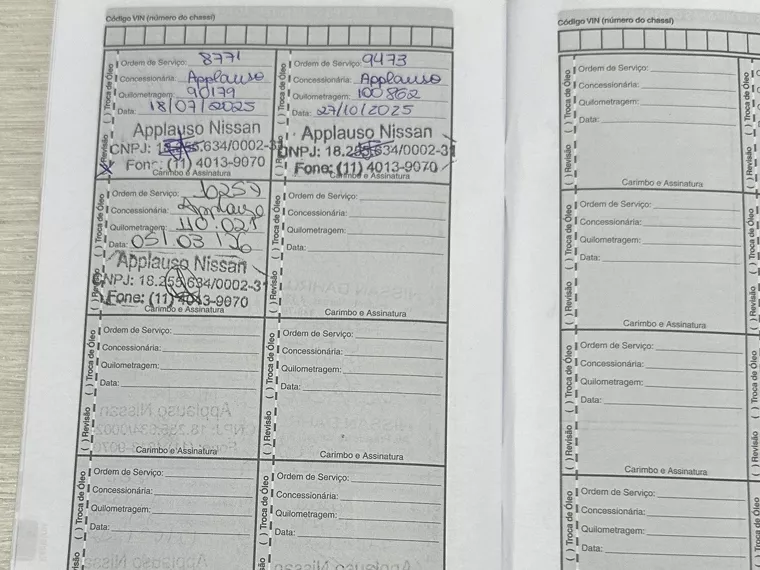 Código VIN (número do chassi)
( ) Revisão ( ) Troca de Óleo
Ordem de Serviço: 8771
Concessionária: Applauso
Quilometragem: 90179
Data: 18/07/2025
Applauso Nissan
CNPJ: 18.255.634/0002-31
Fone: (11) 4013-9070
Carimbo e Assinatura
( ) Revisão ( ) Troca de Óleo
Ordem de Serviço: 9473
Concessionária: Applauso
Quilometragem: 100862
Data: 27/10/2025
Applauso Nissan
CNPJ: 18.255.634/0002-31
Fone: (11) 4013-9070
Carimbo e Assinatura
( ) Revisão ( ) Troca de Óleo
Ordem de Serviço: 10259
Concessionária: Applauso
Quilometragem: 110.021
Data: 05/03/26
Applauso Nissan
CNPJ: 18.255.634/0002-31
Fone: (11) 4013-9070
Carimbo e Assinatura
( ) Revisão ( ) Troca de Óleo
Ordem de Serviço:
Concessionária:
Quilometragem:
Data:
Carimbo e Assinatura
( ) Revisão ( ) Troca de Óleo
Ordem de Serviço:
Concessionária:
Quilometragem:
Data:
Carimbo e Assinatura
( ) Revisão ( ) Troca de Óleo
Ordem de Serviço:
Concessionária:
Quilometragem:
Data:
Carimbo e Assinatura
( ) Troca de Óleo
Ordem de Serviço:
Concessionária:
Quilometragem:
Data:
( ) Troca de Óleo
Ordem de Serviço:
Concessionária:
Quilometragem:
Data:
Código VIN (número do chassi)
( ) Revisão ( ) Troca de Óleo
Ordem de Serviço:
Concessionária:
Quilometragem:
Data:
Carimbo e Assinatura
( ) Revisão ( ) Troca de Óleo
Ordem de Serviço:
Concessionária:
Quilometragem:
Data:
Carimbo e Assinatura
( ) Revisão ( ) Troca de Óleo
Ordem de Serviço:
Concessionária:
Quilometragem:
Data:
Carimbo e Assinatura
( ) Troca de Óleo
Ordem de Serviço:
Concessionária:
Quilometragem:
Data:
( ) Revisão ( ) Troca de Óleo
( ) Revisão ( ) Troca de Óleo
( ) Revisão ( ) Troca de Óleo